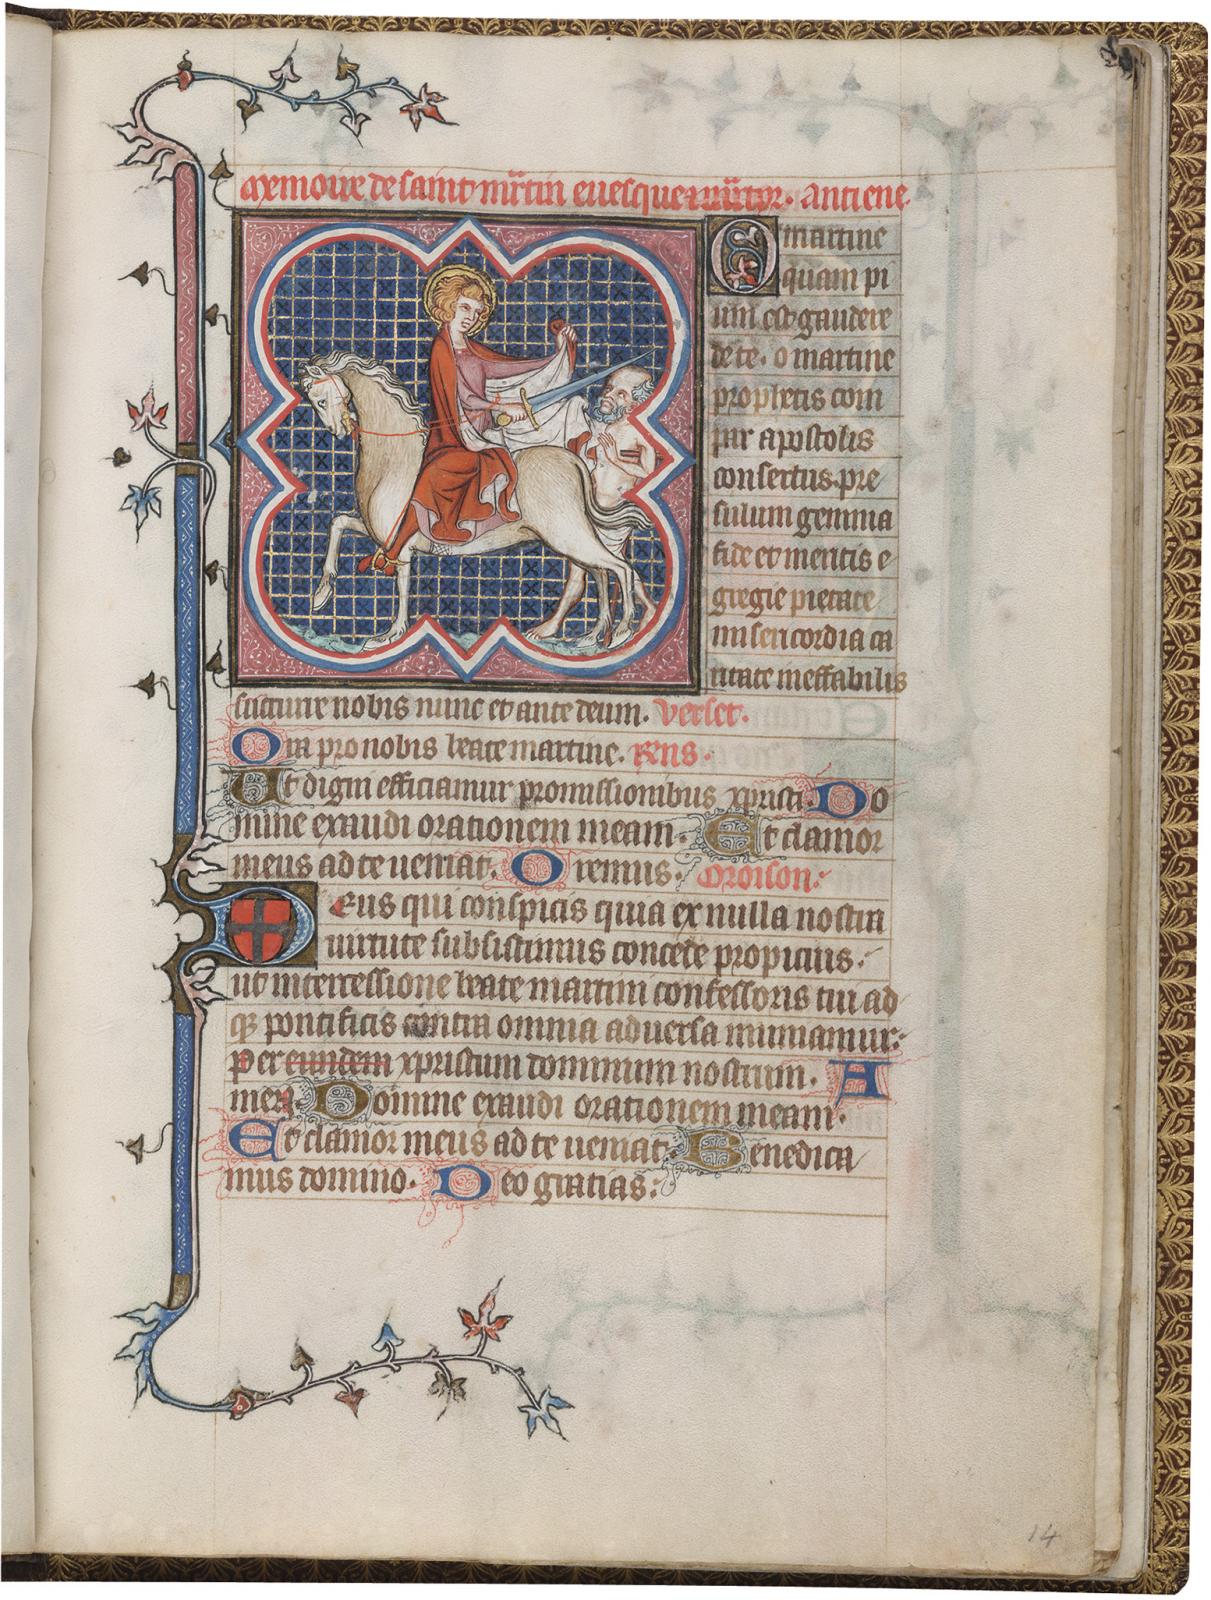 Memoire de saint mr̃tin evesque mr̃tyr. antiene.
O martine
quam pi
um est gaudere
de te. o martine
prophetis com
par apostolis
consertus. pre
sulum gemma
fide et meritis e
gregie pietate
misericordia ca
ritate ineffabilis
succurre nobis nunc et ante deum. verset.
Ora pro nobis beate martine. Rens.
Ut digni efficiamur promissionibus xpristi. Do
mine exaudi orationem meam. Et clamor
meus ad te veniat. Oremus. Oroison.
Deus qui conspicis quia ex nulla nostra
virtute subsistimus concede propicius.
ut intercessione beate martini confessoris tui ad
qꝫ pontificis contra omnia adversa muniamur.
Per eundem xpristum dominum nostrum. A
men. Domine exaudi orationem meam.
Et clamor meus ad te veniat. Benedica
mus domino. Deo gratias.
14